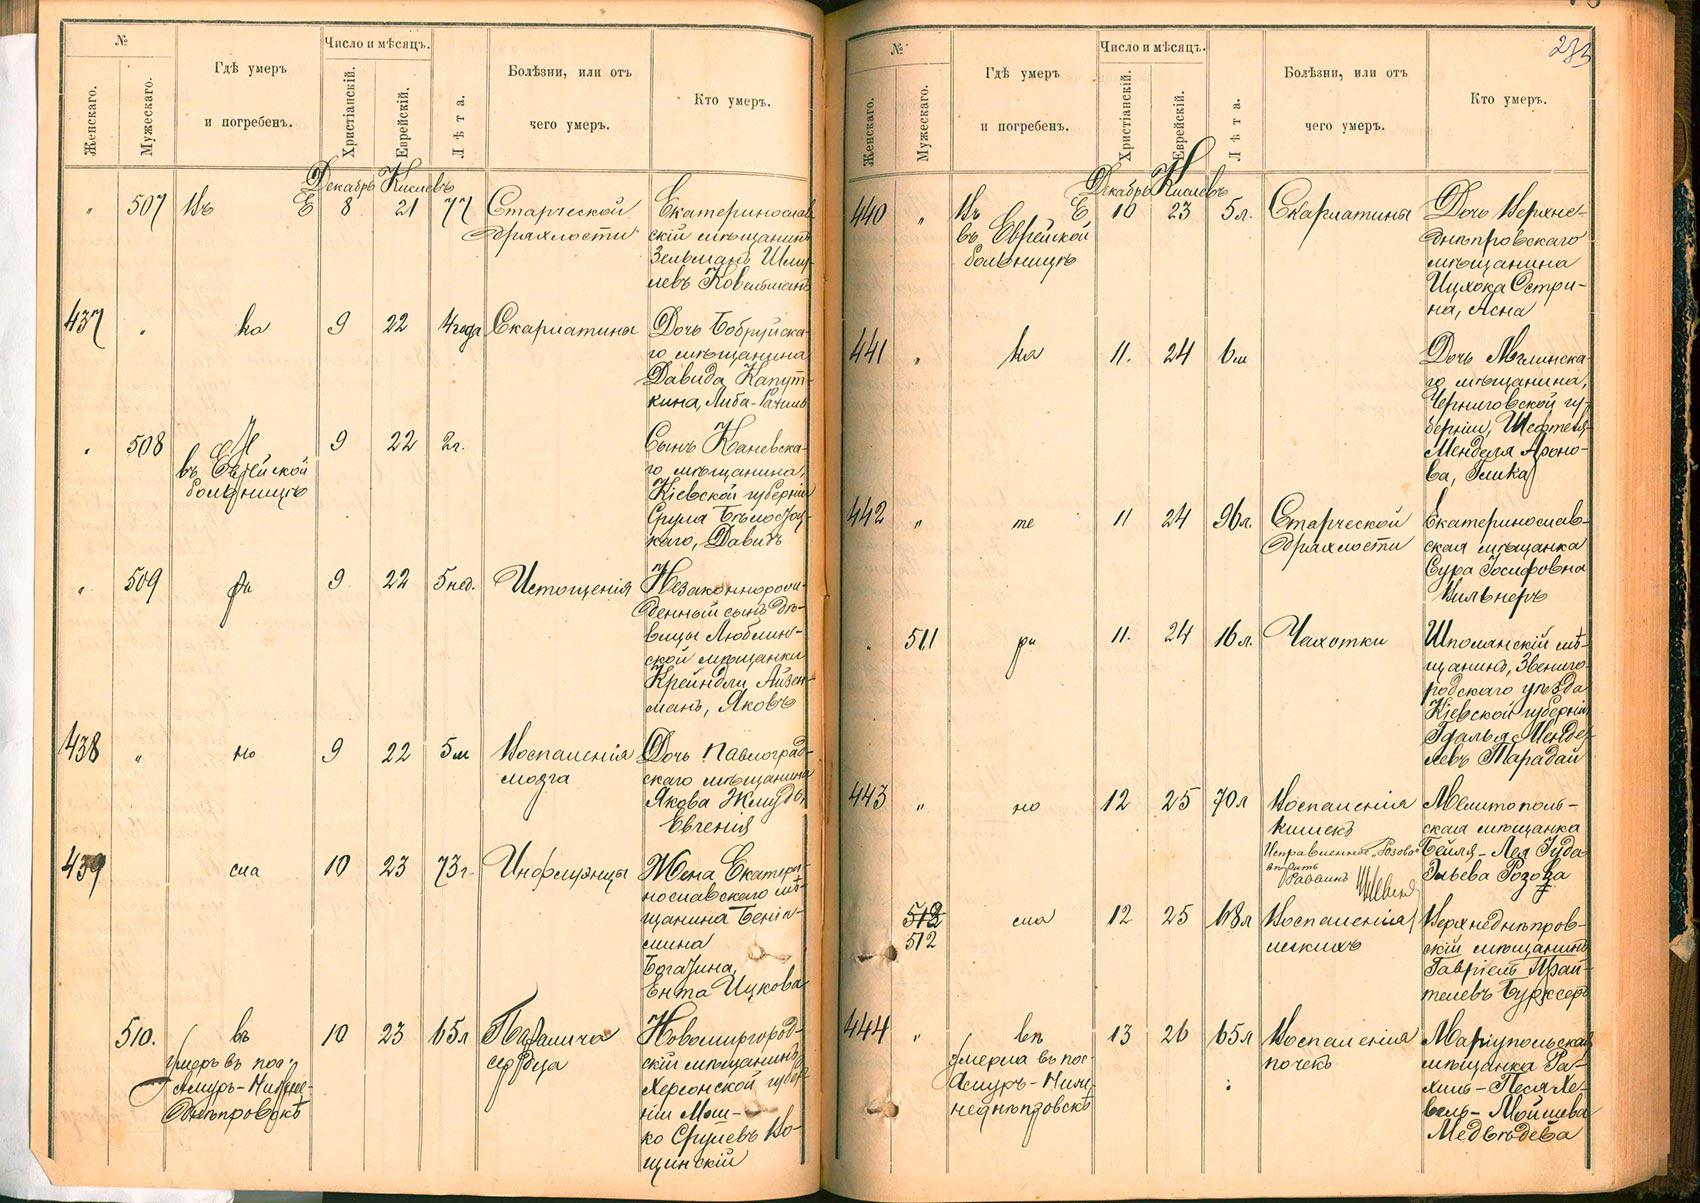 №
Женскаго.
Мужескаго.
Гдѣ умеръ
и погребенъ.
Число и мѣсяцъ.
Христіанскій.
Еврейскій.
Лѣта.
Болѣзни, или отъ
чего умеръ.
Кто умеръ.
Декабрь Кислевъ
" 507 Въ Е 8 21 77
Старческой
дряхлости
Екатеринослав-
скій мѣщанинъ
Зельманъ Шму-
левъ Ковельманъ
437 " ка 9 22 4 года Скарлатина
Дочь Бобруйска-
го мѣщанина
Давида Капут-
кина, Либа-Рахиль
" 508 9 22 2г.
въ Еврейской
больницѣ
Сынъ Каневска-
го мѣщанина,
Кіевской губерніи
Срула Бѣлоцер-
каго, Давидъ
" 509 9 22 5 нед. Истощенія
Незаконнорож-
денный сынъ дѣ-
вицы Люблин-
ской мѣщанки
Крейндли Айзен-
манъ, Яковъ
438 " но 9 22 5м
Воспаленія
мозга
Дочь Павлоград-
скаго мѣщанина
Якова Жмудь
Евгенія
439 сла 10 23 73г. Инфлуэнцы
Жена Екатери-
нославскаго мѣ-
щанина Беніа-
мина
Богатина,
Ента Ицкова
510. въ 10 23 65л
умеръ въ пос.
Амуръ-Нижне-
днѣпровскѣ
Паралича
сердца
Новомиргород-
скій мѣщанинъ
Херсонской губер-
ніи Мош-
ко Срулевъ Ко-
щинскій
233
№
Женскаго.
Мужескаго.
Гдѣ умеръ
и погребенъ.
Число и мѣсяцъ.
Христіанскій.
Еврейскій.
Лѣта.
Болѣзни, или отъ
чего умеръ.
Кто умеръ.
Декабрь Кислевъ
440 " Въ Е 10 23 5л. Скарлатины
въ Еврейской
больницѣ
Дочь Верхне-
днѣпровскаго
мѣщанина
Ицхока Остри-
на, Асна
441 " ка 11. 24 6м
Дочь Мглинска-
го мѣщанина,
Черниговской гу-
берніи, Шефтеля-
Менделя Ароно-
ва, Гликa
442 " те 11 24 96л.
Старческой
дряхлости
Екатеринослав-
ская мѣщанка
Сура Іосифовна
Вильнеръ
511 ри 11. 24 16л. Чахотки
Шполянскій мѣ-
щанинъ, Звениго-
родскаго уѣзда
Кіевской губерніи
Гдалья Менде-
левъ Тарадай
443 " но 12 25 70л
Воспаленія
кишекъ
Исправленное "Розова"
вѣрить
Раввинъ
Мелитополь-
ская мѣщанка
Бейля-Лея Іуда
Эльева Розова
512 сла 12 25 68л
512
Воспаленія
легкихъ
Верхнеднѣпров-
скій мѣщанинъ
Гавріелъ Фрай-
телевъ Бурксеръ
444 " въ 13 26 65л
умерла въ пос.
Амуръ-Ниж-
неднѣпровскѣ
Воспаленія
почекъ
Маріупольская
мѣщанка Ра-
хиль-Песя-Хе-
вель-Мойшева
Медвѣдева